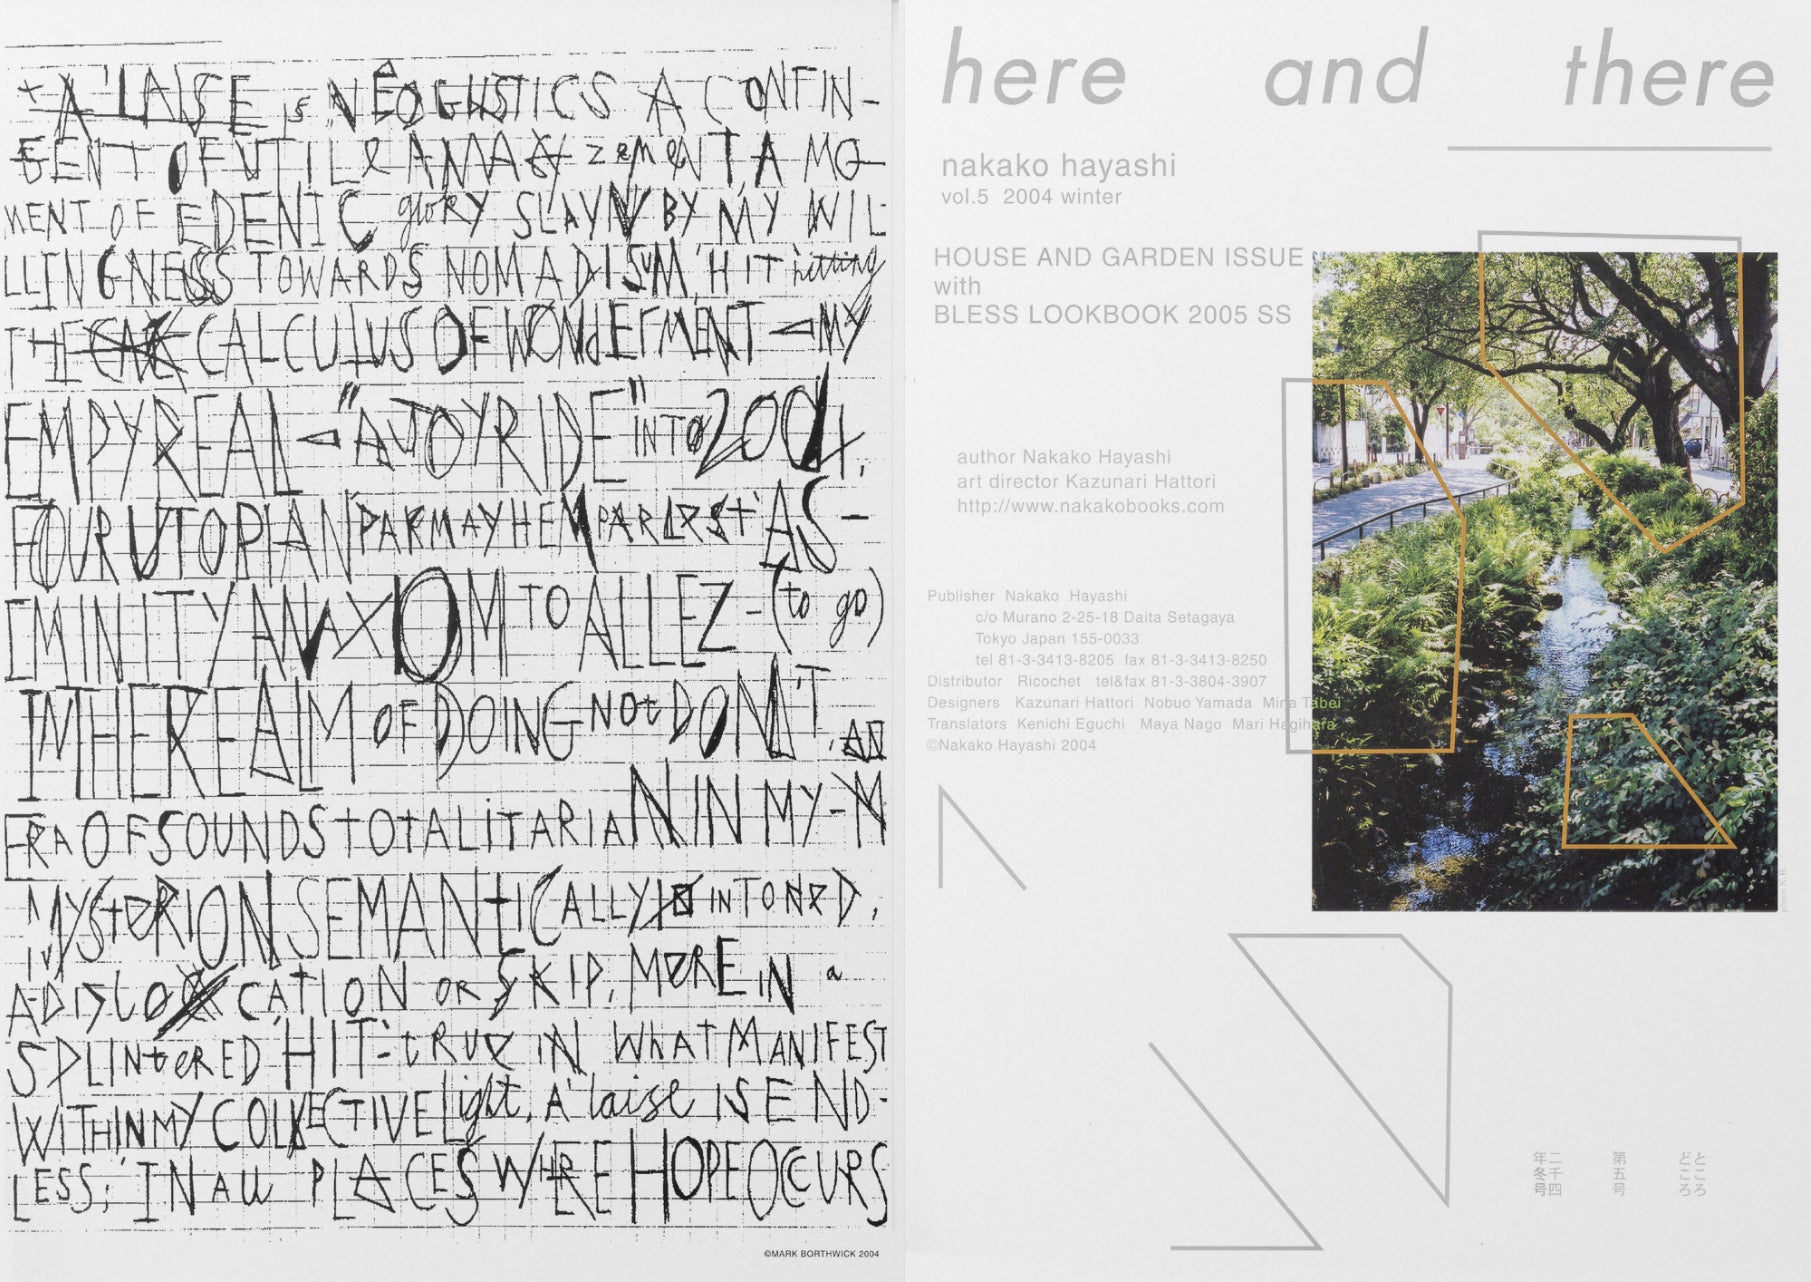 A'LAISE is NEOGUSTICS A CONFIN-
GENT OF UTILE AMAZEMENT A MO-
MENT OF EDENIC glORY SLAYN BY MY WIL-
LLINGNESS TOWARDS NOMADISUM, 'HIT hitting
THE CALCULUS OF WONDERMENT - MY
EMPYREAL - "A JOYRIDE" INTO 2004,
FOUR UTOPIAN PARMAYHEM AS-
IMINITY AN AXIOM TO ALLEZ - (to go)
IN THE REALM OF DOING NOt DON'T, AN
ERA OF SOUNDS tOtALitARIAN IN MY - M
MYStERION SEMANtICALLY INTONED,
A DISLOCATION OR SKIP, MORE IN a
SPLINtERED 'HIT' - tRUE IN WhAT MANIFEST
WITHIN MY COLLECTIVE Light, A'laise IS END-
LESS; IN ALL PLACES WHERE HOPE OCCURS
©MARK BORTHWICK 2004
here and there
nakako hayashi
vol.5 2004 winter
HOUSE AND GARDEN ISSUE
with
BLESS LOOKBOOK 2005 SS
author Nakako Hayashi
art director Kazunari Hattori
http://www.nakakobooks.com
Publisher Nakako Hayashi
c/o Murano 2-25-18 Daita Setagaya
Tokyo Japan 155-0033
tel 81-3-3413-8205 fax 81-3-3413-8250
Distributor Ricochet tel&fax 81-3-3804-3907
Designers Kazunari Hattori Nobuo Yamada Mina Tabei
Translators Kenichi Eguchi Maya Nago Mari Hagihara
©Nakako Hayashi 2004
photo N.H.
ところ
どころ
第五号
二千四
年冬号